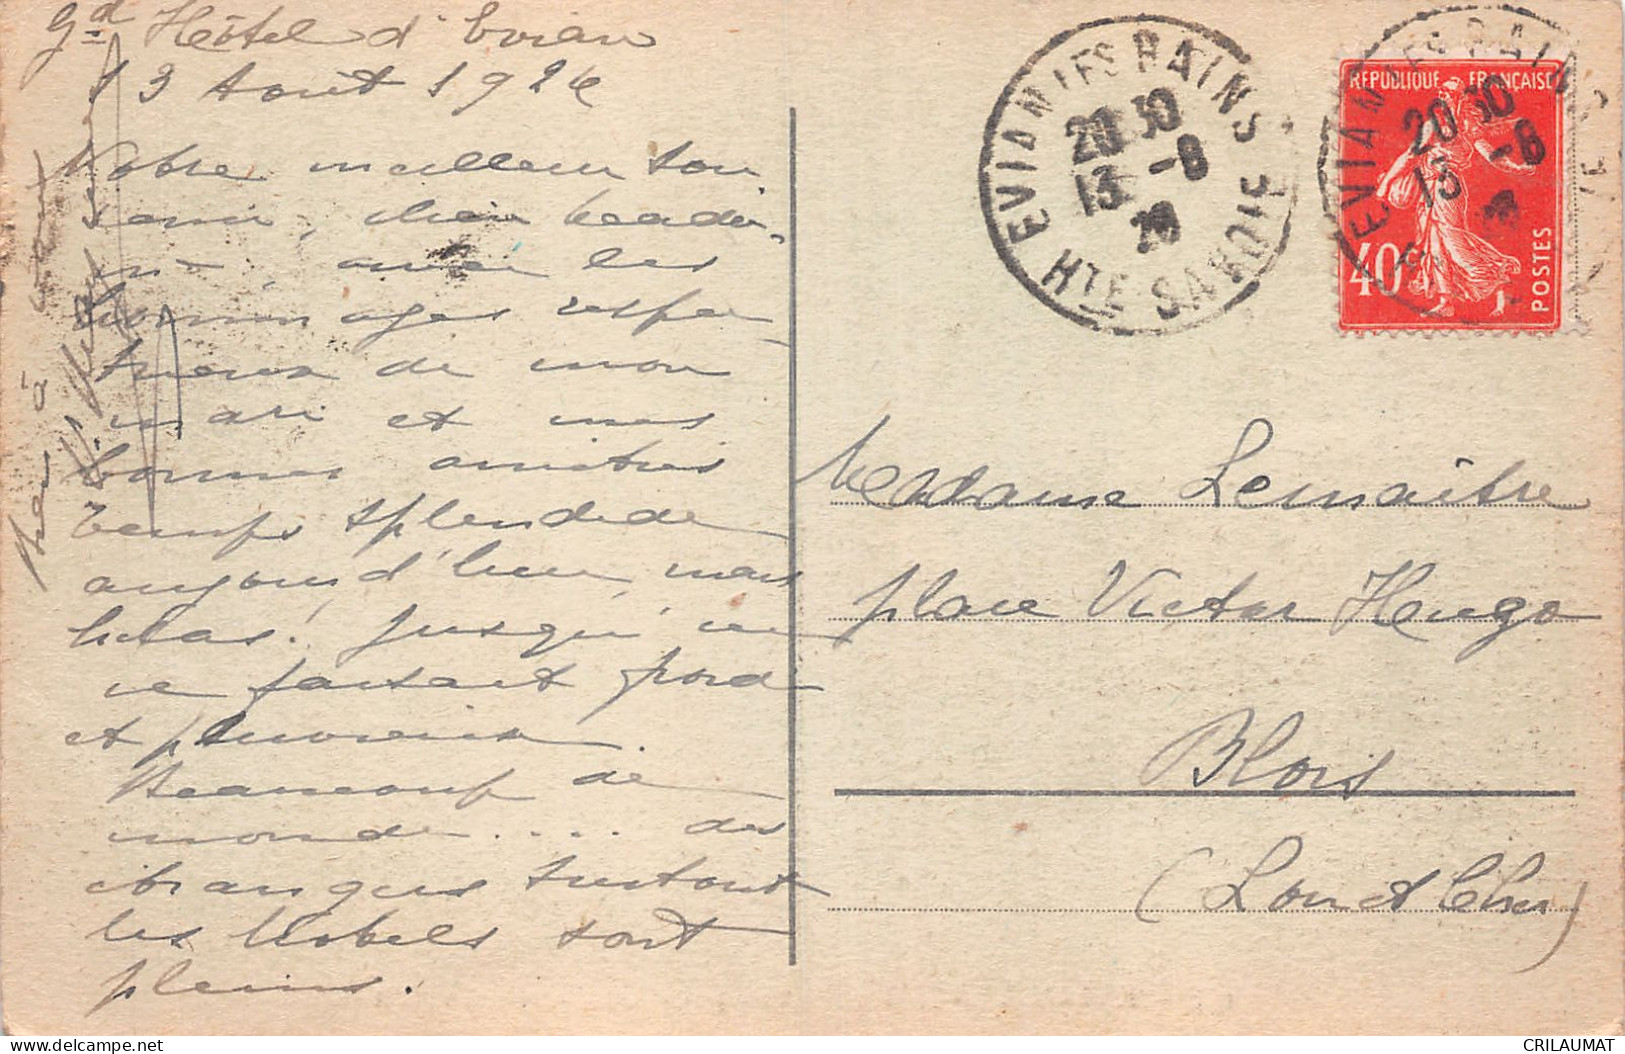 Gd Hôtel d'Evian
13 Août 1926
Notre meilleur sou
venir, chère
avec les
hommages respec
tueux de mon
mari et mes
bonnes amitiés
Temps splendide
aujourd'hui, mais
hélas! jusqu'ici
ce faisait froid
et pluvieux.
Beaucoup de
monde.... des
étrangers surtout
les hôtels sont
pleins.
EVIAN LES BAINS
20 30
13 -8
26
HTE SAVOIE
EVIAN LES BAINS
20 30
13 -8
REPUBLIQUE FRANÇAISE
40c
POSTES
Madame Lemaître
place Victor Hugo
Blois
(Loir et Cher)
CRILAUMAT